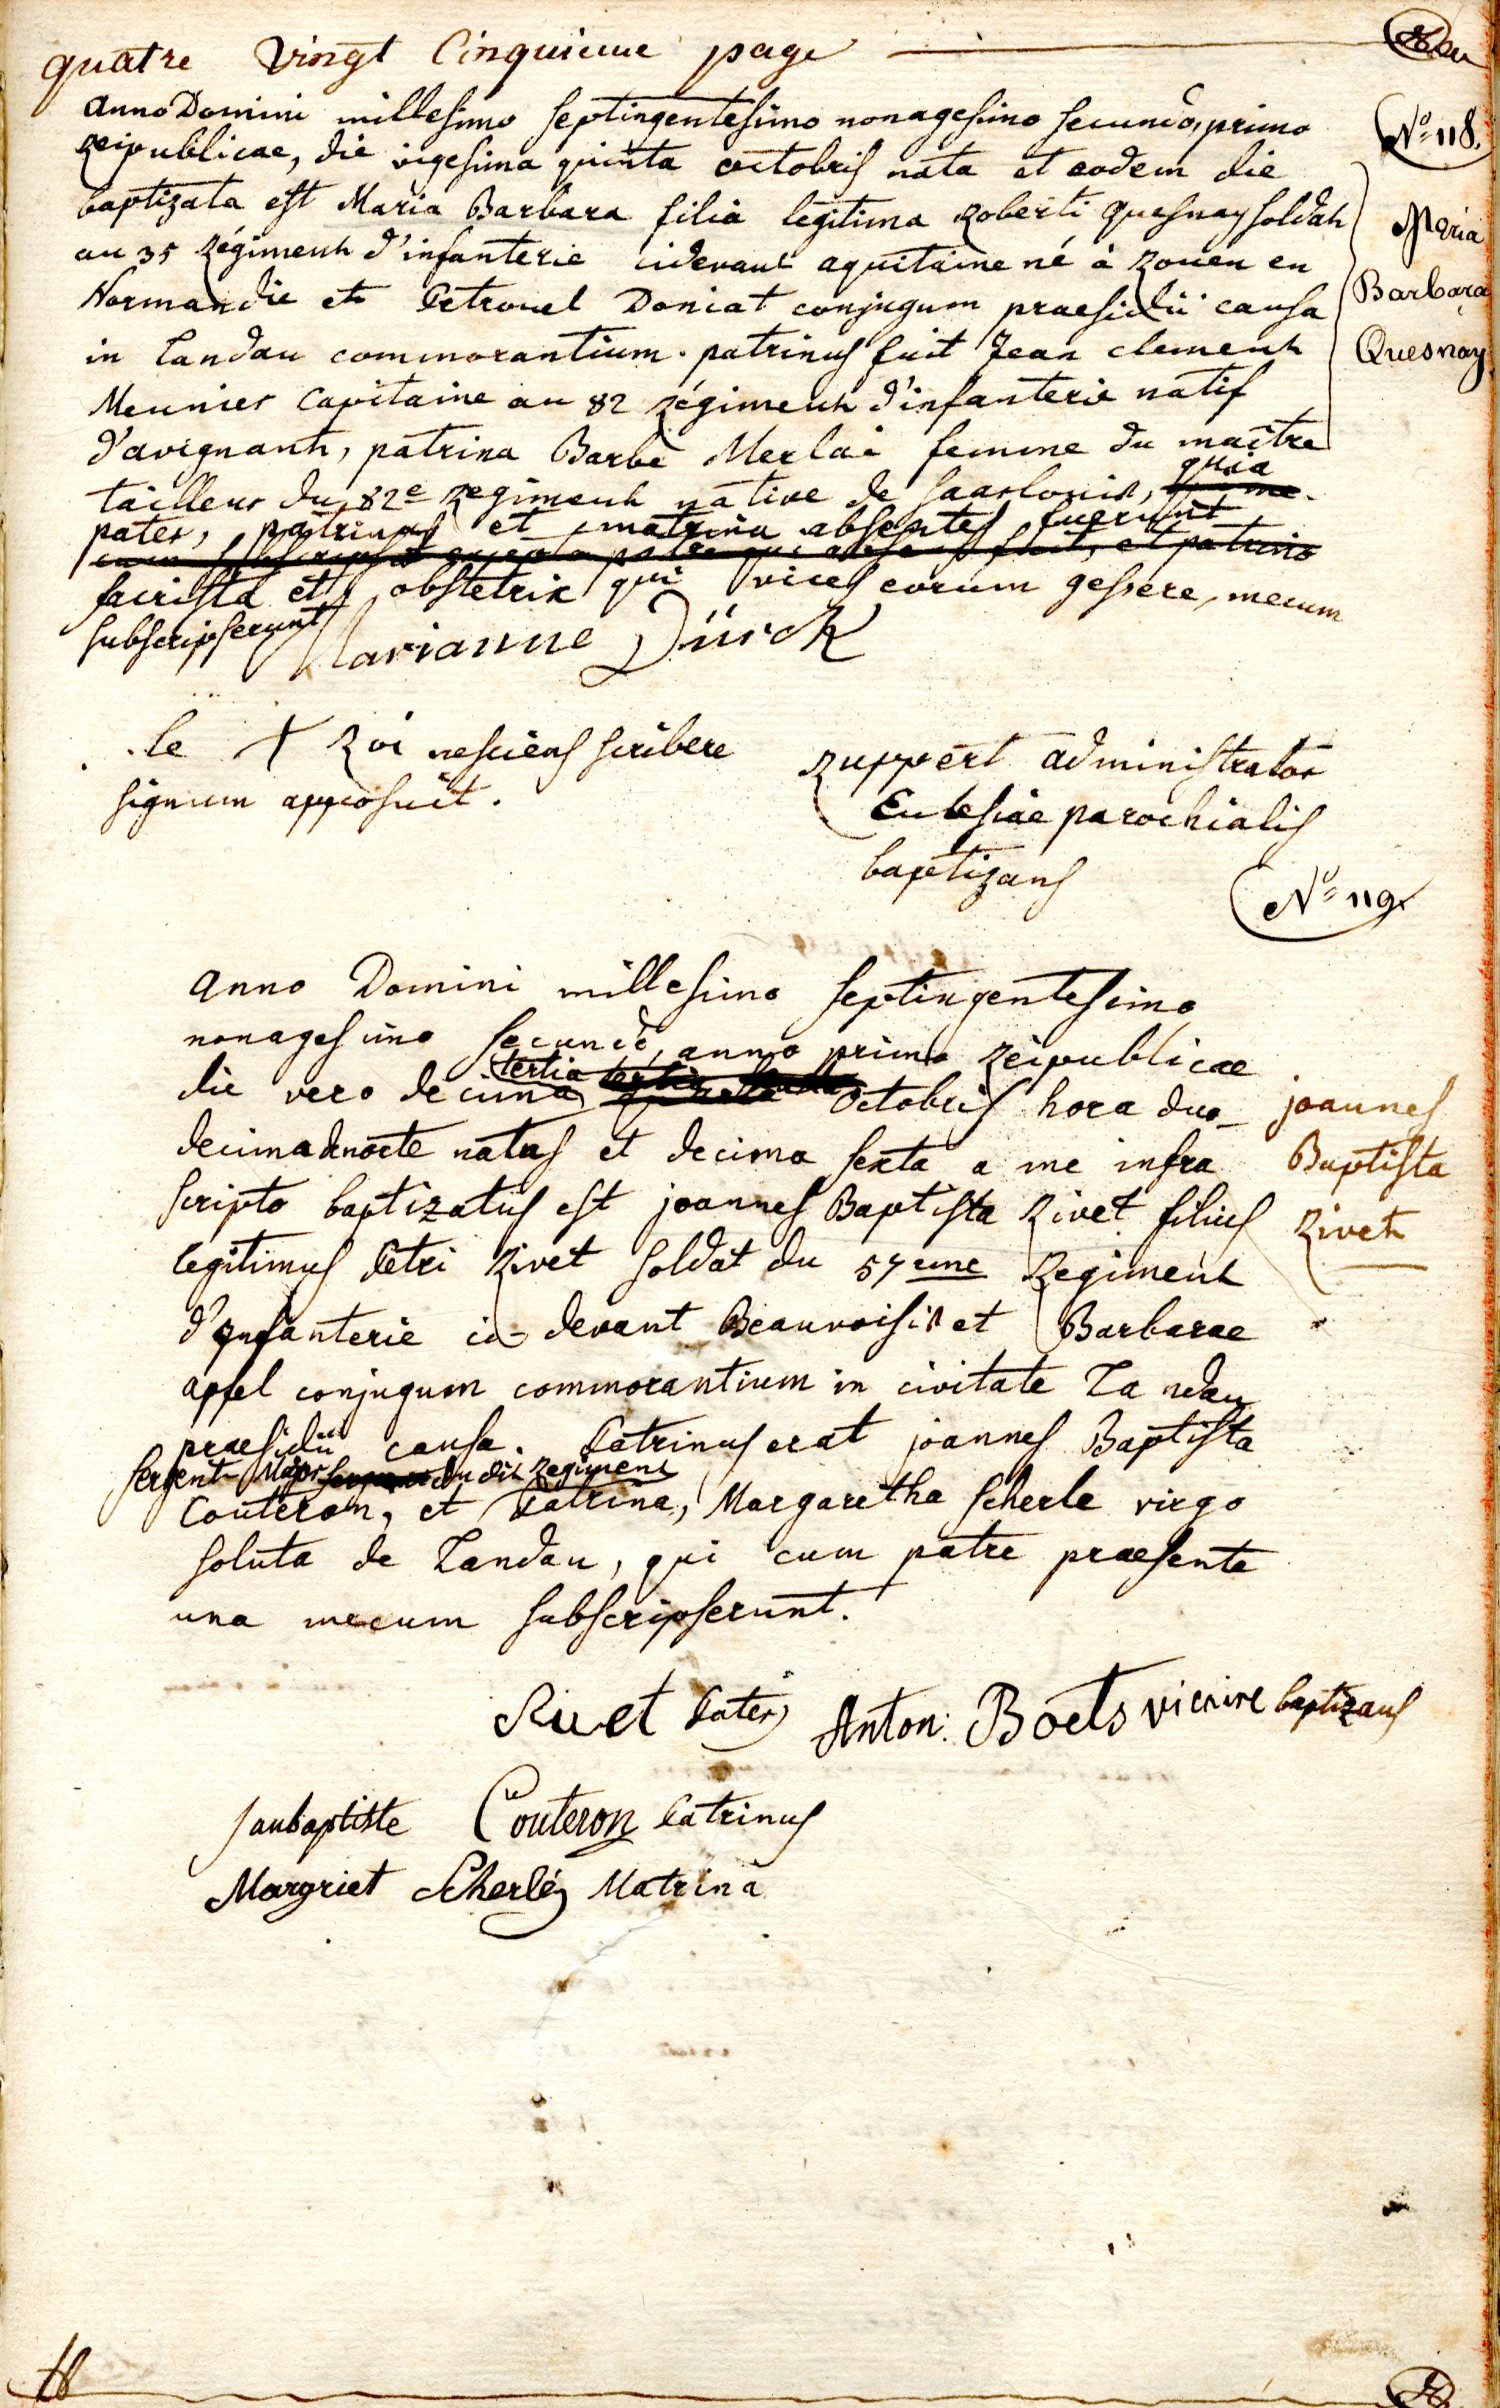 quatre vingt Cinquieme page
anno Domini millesimo septingentesimo nonagesimo secundo, primo
reipublicae, die vigesima quinta octobris nata et eodem die
baptizata est Maria Barbara filia legitima Roberti Quesnay soldat
au 35 régiment d'infanterie cidevant aquitaine né à Rouen en
Normandie et Petronel Doniat conjugum praesidii causa
in Landau commorantium. patrinus fuit Jean clement
Meunier Capitaine au 82 régiment d'infanterie natif
d'avignant, patrina Barbe Merlai femme du maitre
tailleur du 82e regiment native de saarlouis, quia
pater, patrinus et matrina absentes fuerunt
sacrista et obstetrix qui vices eorum gessere, mecum
subscripserunt Marianne Dürck
le + Roi nesciens scribere
signum apposuit.
Ruppert administrator
Ecclesiae parochialis
baptizans
No 118.
Maria
Barbara
Quesnay
No 119.
anno Domini millesimo septingentesimo
nonagesimo secundo, anno primo reipublicae
die vero decima tertia octobris hora duo-
decima de nocte natus et decima sexta a me infra
scripto baptizatus est joannes Baptista Rivet filius
legitimus Petri Rivet soldat du 57eme Regiment
d'Infanterie ci-devant Beauvoisis et Barbarae
apfel conjugum commorantium in civitate Landau
praesidii causa. Patrinus erat joannes Baptista
sergent Major du dit Regiment
Couteron, et Patrina, Margaretha scherle virgo
soluta de Landau, qui cum patre praesente
una mecum subscripserunt.
joannes
Baptista
Rivet
Rivet Pater Anton: Boets vicaire baptizans
Janbaptiste Couteron Patrinus
Margriet Scherle Matrina